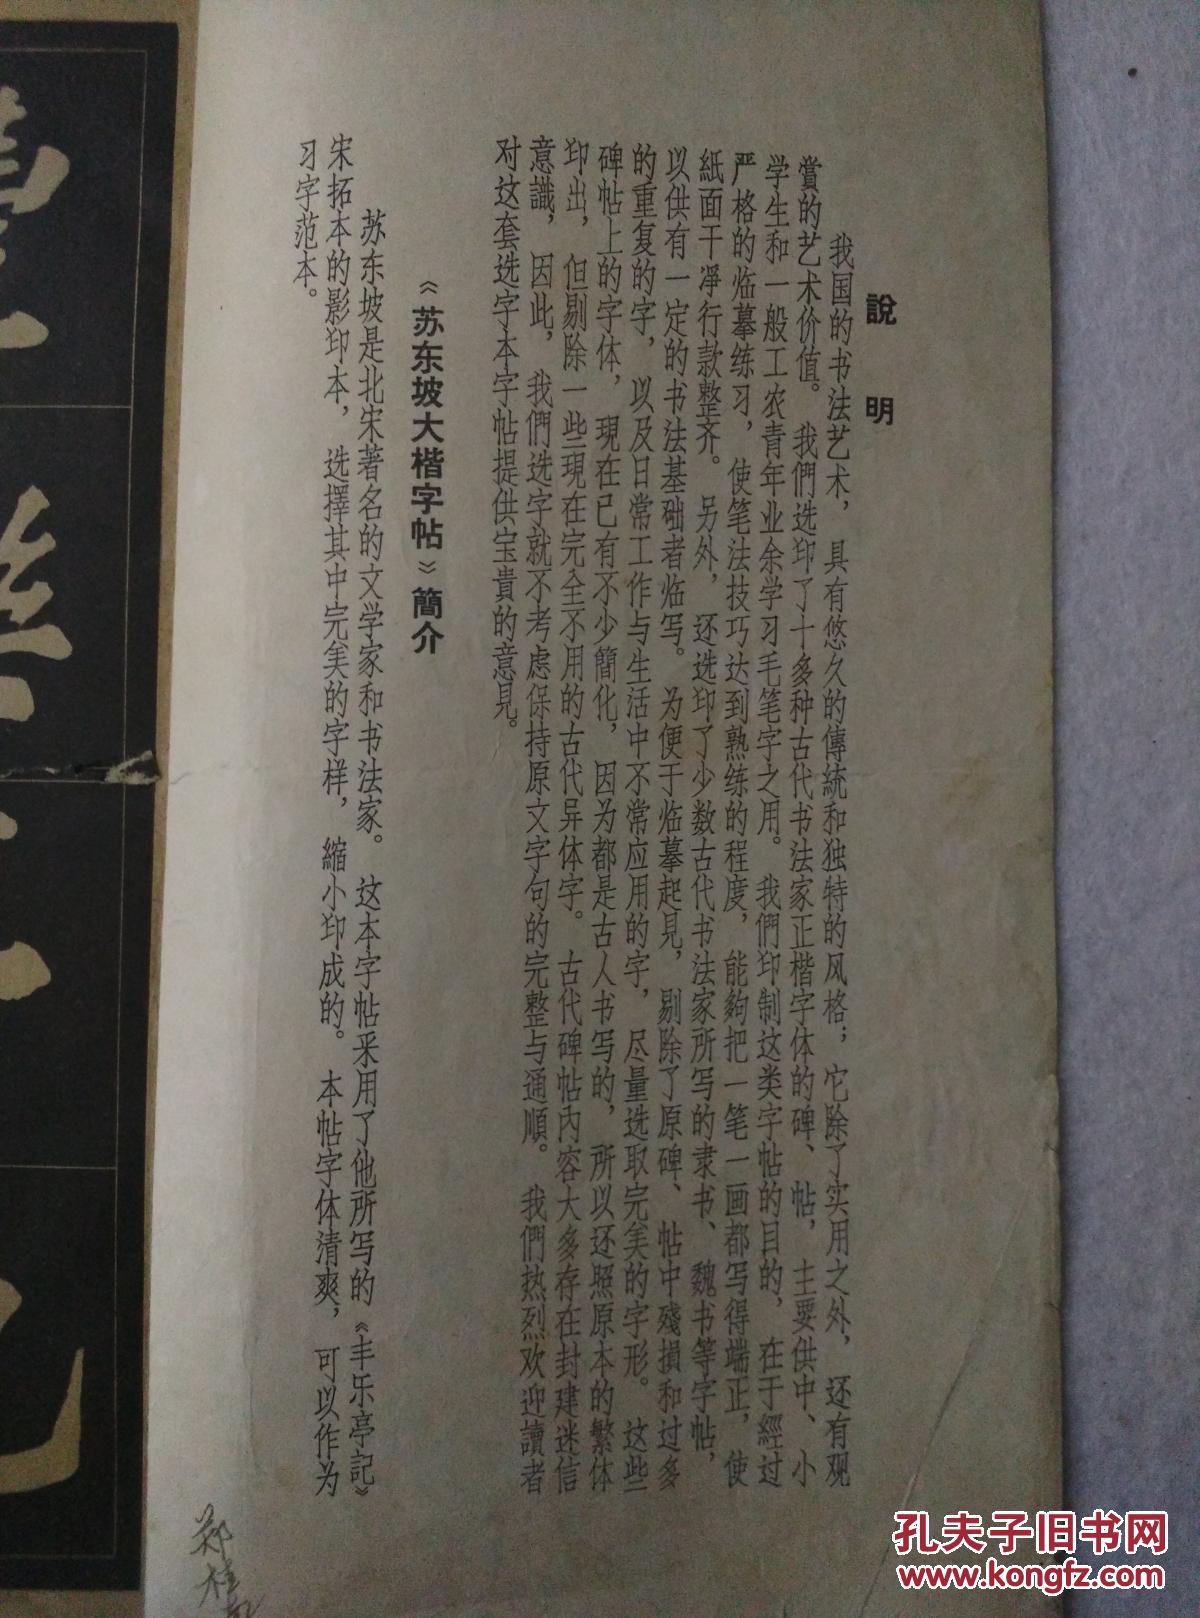 說明
我国的书法艺术，具有悠久的傳統和独特的风格；它除了实用之外，还有观
賞的艺术价值。我們选印了十多种古代书法家正楷字体的碑、帖，主要供中、小
学生和一般工农青年业余学习毛笔字之用。我們印制这类字帖的目的，在于經过
严格的临摹练习，使笔法技巧达到熟练的程度，能夠把一笔一画都写得端正，使
紙面干凈行款整齐。另外，还选印了少数古代书法家所写的隶书、魏书等字帖，
以供有一定的书法基础者临写。为便于临摹起見，剔除了原碑、帖中殘損和过多
的重复的字，以及日常工作与生活中不常应用的字，尽量选取完美的字形。这些
碑帖上的字体，現在已有不少簡化，因为都是古人书写的，所以还照原本的繁体
印出，但剔除一些現在完全不用的古代异体字。古代碑帖內容大多存在封建迷信
意識，因此，我們选字就不考虑保持原文字句的完整与通順。我們热烈欢迎讀者
对这套选字本字帖提供宝貴的意見。
《苏东坡大楷字帖》簡介
苏东坡是北宋著名的文学家和书法家。这本字帖采用了他所写的《丰乐亭記》
宋拓本的影印本，选擇其中完美的字样，縮小印成的。本帖字体清爽，可以作为
习字范本。
孔夫子旧书网
www.kongfz.com